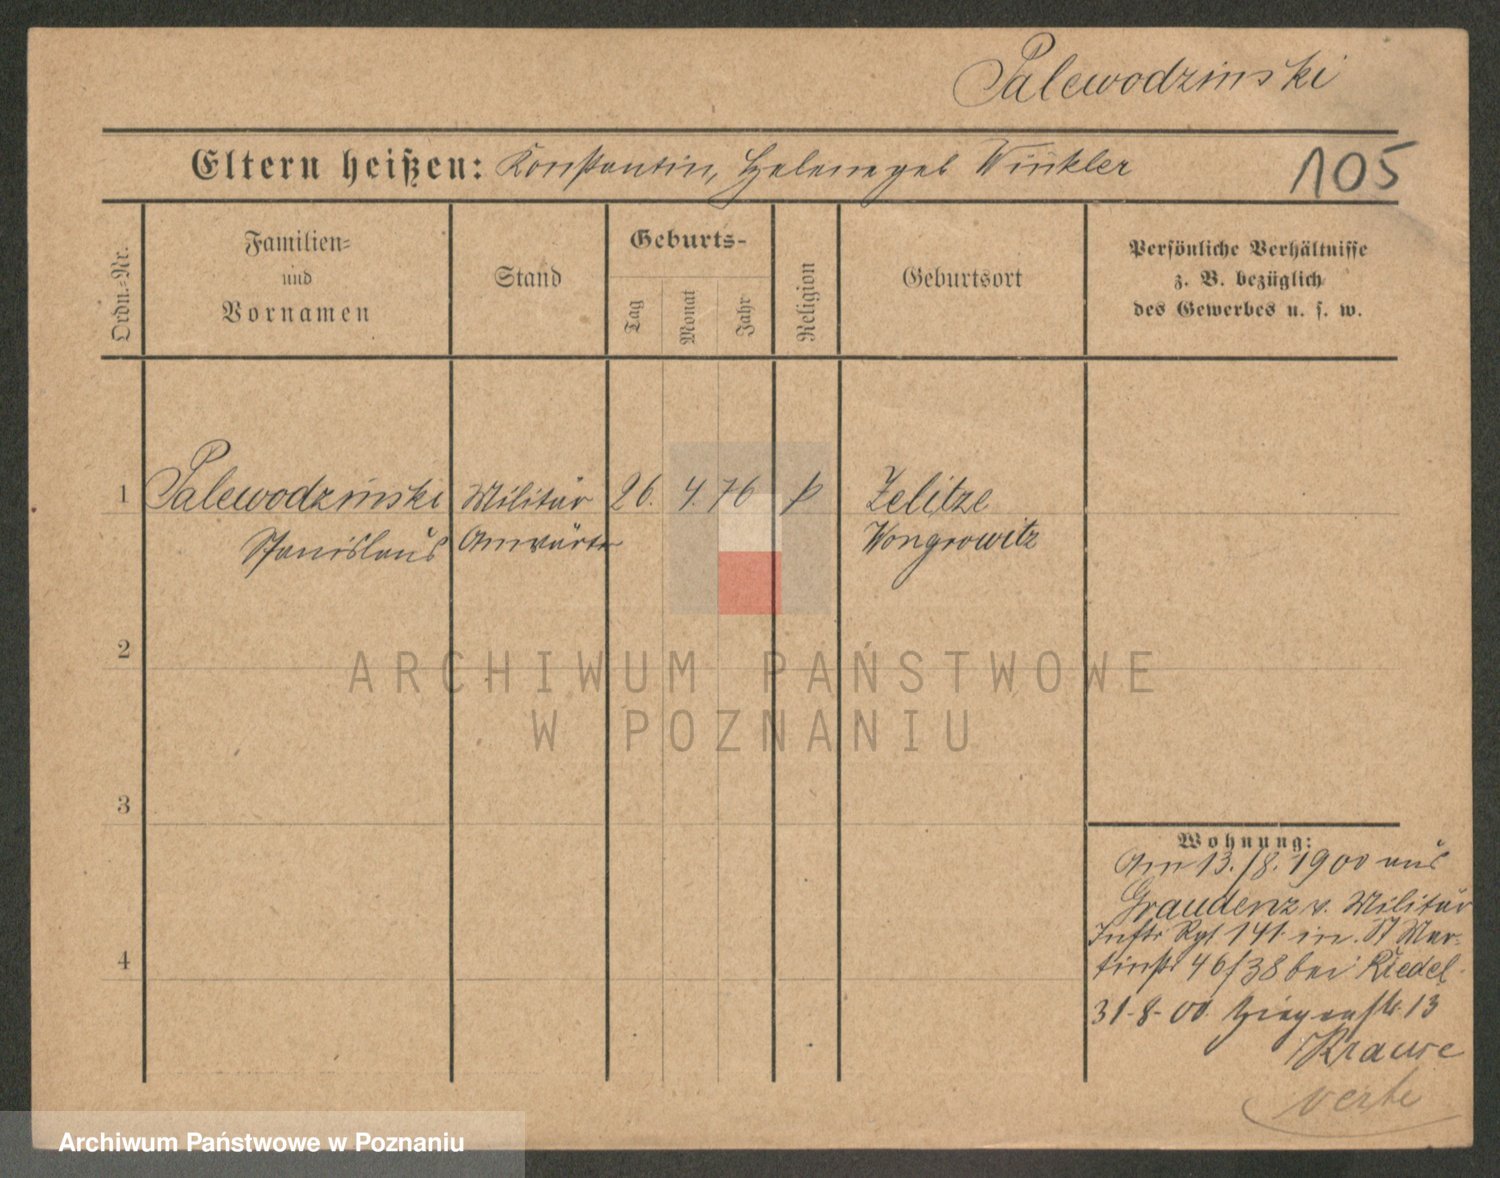 Palewodzinski
Eltern heißen: Konstantin, Helene geb Winkler
105
Ordn.-Nr.
Familien-
und
Vornamen
Stand
Geburts-
Tag
Monat
Jahr
Religion
Geburtsort
Persönliche Verhältnisse
z. B. bezüglich
des Gewerbes u. s. w.
1 Palewodzinski Militär 26. 4. 76 Zelitze
Stanislaus Anwärter Wongrowitz
2
ARCHIWUM PAŃSTWOWE
W POZNANIU
3
Wohnung:
Am 13./8. 1900 aus
Graudenz v. Militär
Inftr Rgt 141. in. St Mar-
tinstr 46/38 bei Riedel
4
31-8-00. 13
Krause
verte
Archiwum Państwowe w Poznaniu